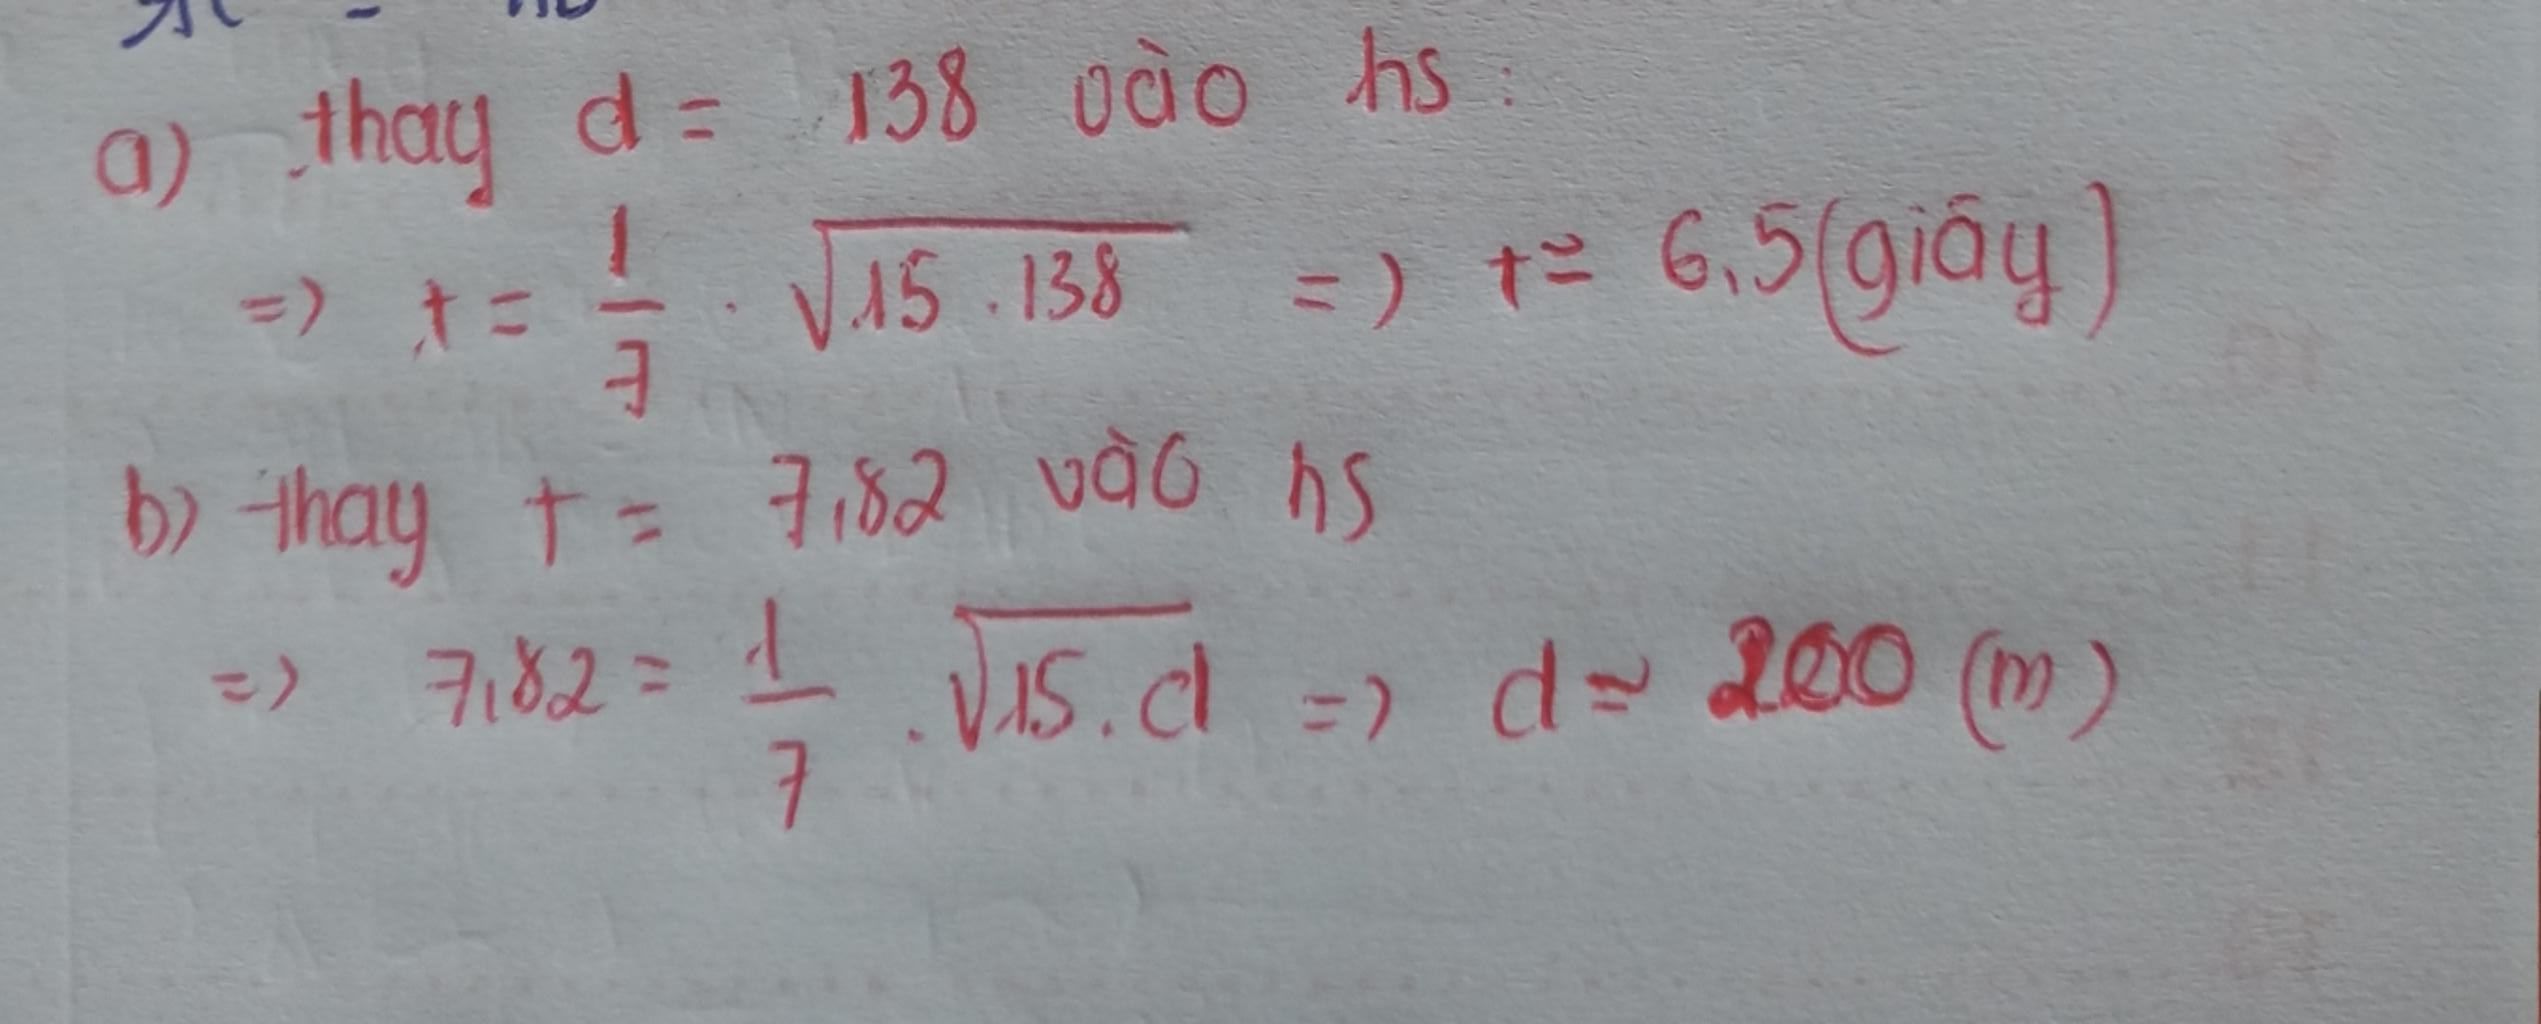 a) thay d = 138 vào hs :
=> t = 1/7 . √15 . 138 => t ≃ 6,5 (giây)
b) thay t = 7,82 vào hs
=> 7,82 = 1/7 . √15 . d => d ≃ 200 (m)